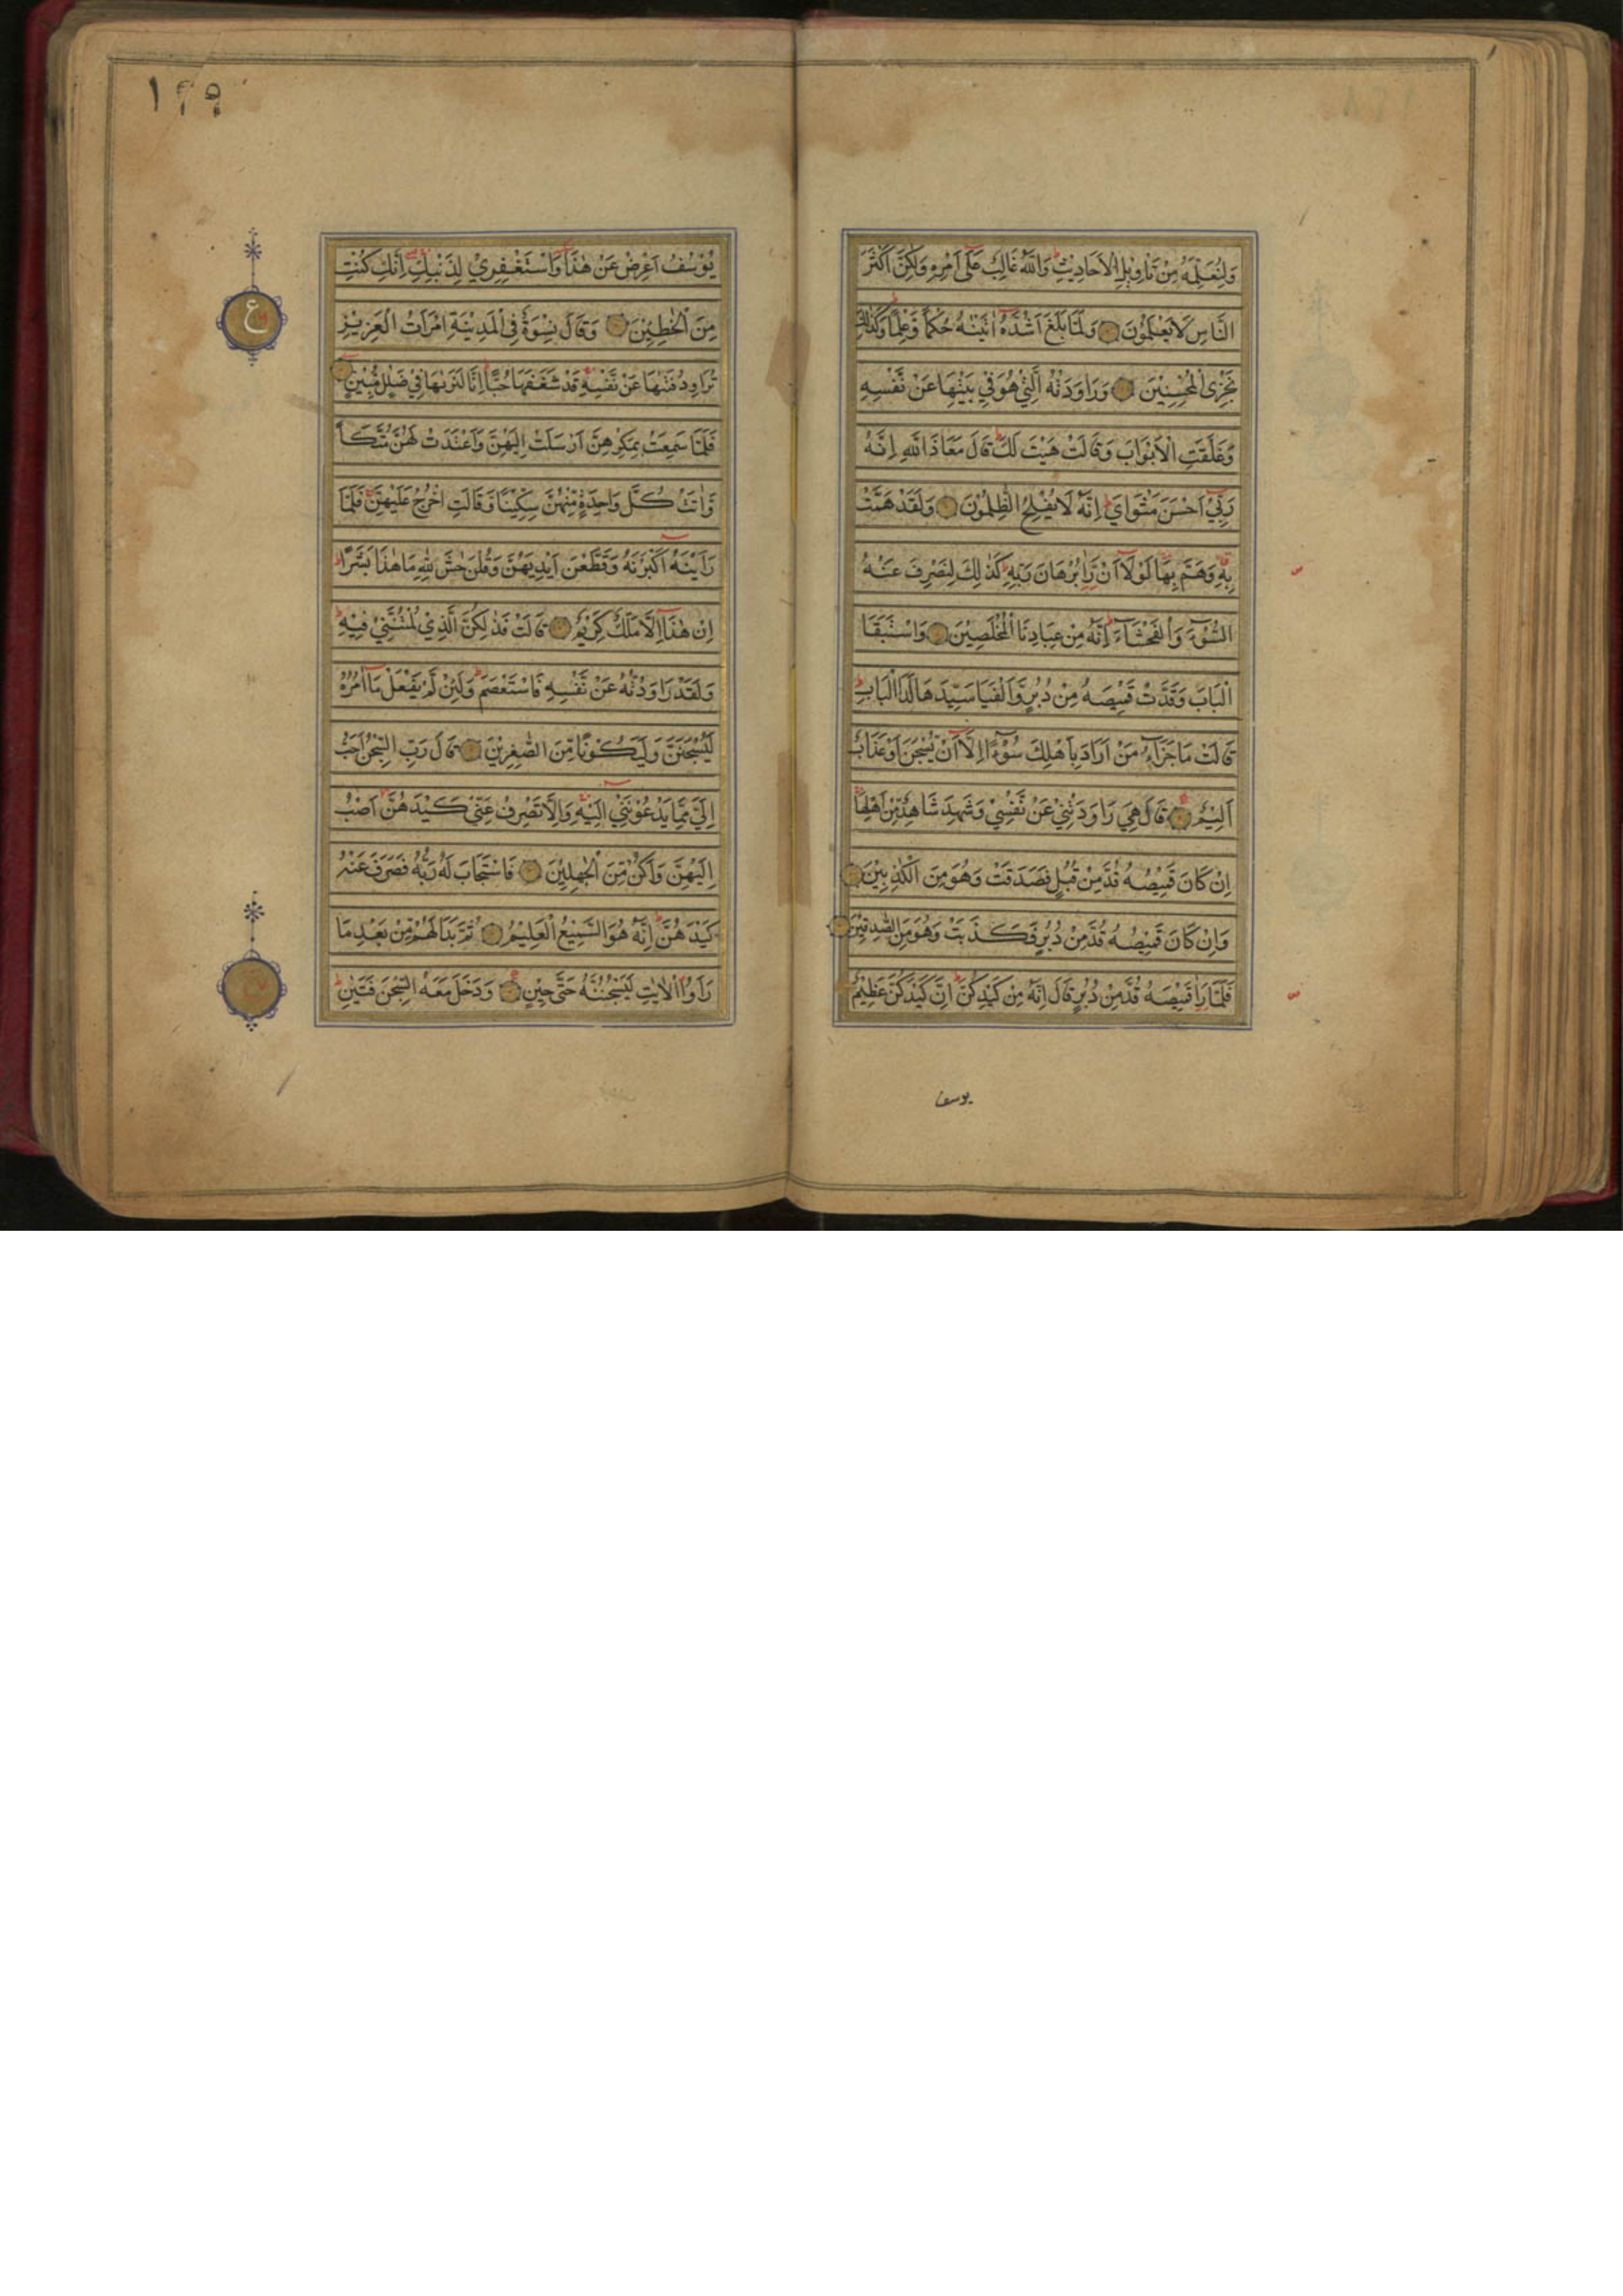 وَلِنُعَلِّمَهُ مِنْ تَاْوِيْلِ الْاَحَادِيْثِ ؕ وَاللّٰهُ غَالِبٌ عَلٰٓى اَمْرِهٖ وَلٰكِنَّ اَكْثَرَ
النَّاسِ لَايَعْلَمُوْنَ وَلَمَّا بَلَغَ اَشُدَّهٗٓ اٰتَيْنٰهُ حُكْمًا وَّعِلْمًا ؕ وَكَذٰلِكَ
نَجْزِى الْمُحْسِنِيْنَ وَرَاوَدَتْهُ الَّتِيْ هُوَ فِيْ بَيْتِهَا عَنْ نَّفْسِهٖ
وَغَلَّقَتِ الْاَبْوَابَ وَقَالَتْ هَيْتَ لَكَ ؕ قَالَ مَعَاذَ اللّٰهِ اِنَّهٗ
رَبِّيْٓ اَحْسَنَ مَثْوَايَ ؕ اِنَّهٗ لَا يُفْلِحُ الظّٰلِمُوْنَ وَلَقَدْ هَمَّتْ
بِهٖ وَهَمَّ بِهَا لَوْلَآ اَنْ رَّاٰ بُرْهَانَ رَبِّهٖ ؕ كَذٰلِكَ لِنَصْرِفَ عَنْهُ
السُّوْٓءَ وَالْفَحْشَآءَ ؕ اِنَّهٗ مِنْ عِبَادِنَا الْمُخْلَصِيْنَ وَاسْتَبَقَا
الْبَابَ وَقَدَّتْ قَمِيْصَهٗ مِنْ دُبُرٍ وَّاَلْفَيَا سَيِّدَهَا لَدَا الْبَابِ ؕ
قَالَتْ مَا جَزَآءُ مَنْ اَرَادَ بِاَهْلِكَ سُوْٓءًا اِلَّآ اَنْ يُّسْجَنَ اَوْ عَذَابٌ
اَلِيْمٌ قَالَ هِيَ رَاوَدَتْنِيْ عَنْ نَّفْسِيْ وَشَهِدَ شَاهِدٌ مِّنْ اَهْلِهَا
اِنْ كَانَ قَمِيْصُهٗ قُدَّ مِنْ قُبُلٍ فَصَدَقَتْ وَهُوَ مِنَ الْكٰذِبِيْنَ
وَاِنْ كَانَ قَمِيْصُهٗ قُدَّ مِنْ دُبُرٍ فَكَذَبَتْ وَهُوَ مِنَ الصّٰدِقِيْنَ
فَلَمَّا رَاٰ قَمِيْصَهٗ قُدَّ مِنْ دُبُرٍ قَالَ اِنَّهٗ مِنْ كَيْدِكُنَّ ؕ اِنَّ كَيْدَكُنَّ عَظِيْمٌ
يوسف
١٢٩
يُوْسُفُ اَعْرِضْ عَنْ هٰذَا وَاسْتَغْفِرِيْ لِذَنْۢبِكِ اِنَّكِ كُنْتِ
مِنَ الْخٰطِـِٕيْنَ وَقَالَ نِسْوَةٌ فِى الْمَدِيْنَةِ امْرَاَتُ الْعَزِيْزِ
تُرَاوِدُ فَتٰىهَا عَنْ نَّفْسِهٖ قَدْ شَغَفَهَا حُبًّا ؕ اِنَّا لَنَرٰىهَا فِيْ ضَلٰلٍ مُّبِيْنٍ
فَلَمَّا سَمِعَتْ بِمَكْرِهِنَّ اَرْسَلَتْ اِلَيْهِنَّ وَاَعْتَدَتْ لَهُنَّ مُتَّكَاً
وَّاٰتَتْ كُلَّ وَاحِدَةٍ مِّنْهُنَّ سِكِّيْنًا وَّقَالَتِ اخْرُجْ عَلَيْهِنَّ فَلَمَّا
رَاَيْنَهٗٓ اَكْبَرْنَهٗ وَقَطَّعْنَ اَيْدِيَهُنَّ وَقُلْنَ حَاشَ لِلّٰهِ مَا هٰذَا بَشَرًا ؕ
اِنْ هٰذَآ اِلَّا مَلَكٌ كَرِيْمٌ قَالَتْ فَذٰلِكُنَّ الَّذِيْ لُمْتُنَّنِيْ فِيْهِ ؕ
وَلَقَدْ رَاوَدْتُّهٗ عَنْ نَّفْسِهٖ فَاسْتَعْصَمَ ؕ وَلَئِنْ لَّمْ يَفْعَلْ مَآ اٰمُرُهٗ
لَيُسْجَنَنَّ وَلَيَكُوْنًا مِّنَ الصّٰغِرِيْنَ قَالَ رَبِّ السِّجْنُ اَحَبُّ
اِلَيَّ مِمَّا يَدْعُوْنَنِيْٓ اِلَيْهِ وَاِلَّا تَصْرِفْ عَنِّيْ كَيْدَهُنَّ اَصْبُ
اِلَيْهِنَّ وَاَكُنْ مِّنَ الْجٰهِلِيْنَ فَاسْتَجَابَ لَهٗ رَبُّهٗ فَصَرَفَ عَنْهُ
كَيْدَهُنَّ ؕ اِنَّهٗ هُوَ السَّمِيْعُ الْعَلِيْمُ ثُمَّ بَدَا لَهُمْ مِّنْۢ بَعْدِ مَا
رَاَوُا الْاٰيٰتِ لَيَسْجُنُنَّهٗ حَتّٰى حِيْنٍ وَدَخَلَ مَعَهُ السِّجْنَ فَتَيٰنِ ؕ
ع